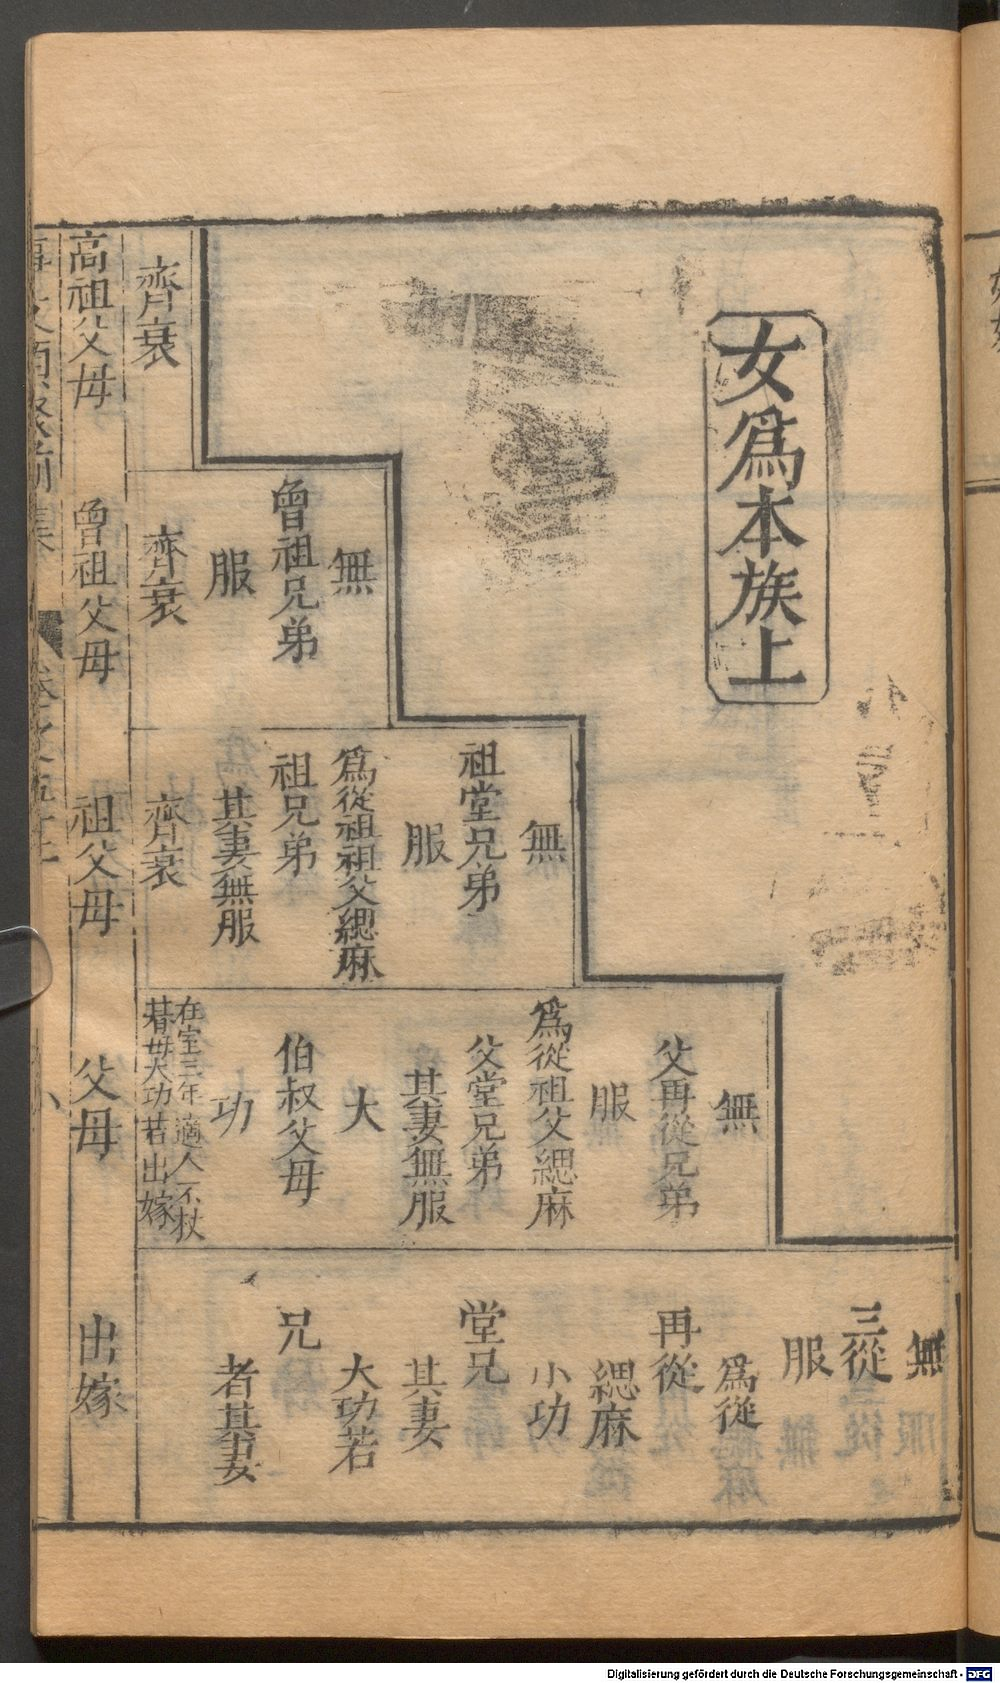 女爲本族上
無
曾祖兄弟
服
齊衰
齊衰
無
祖堂兄弟
服
爲從祖祖父緦麻
祖兄弟
其妻無服
齊衰
無
父再從兄弟
服
爲從祖父緦麻
父堂兄弟
其妻無服
大
伯叔父母
功
在室三年適人不杖
朞母大功若出嫁
無
三從
服
爲從
再從
緦麻
小功
堂兄
其妻
大功若
兄
者其妻
高祖父母
曾祖父母
祖父母
父母
出嫁
Digitalisierung gefördert durch die Deutsche Forschungsgemeinschaft - DFG